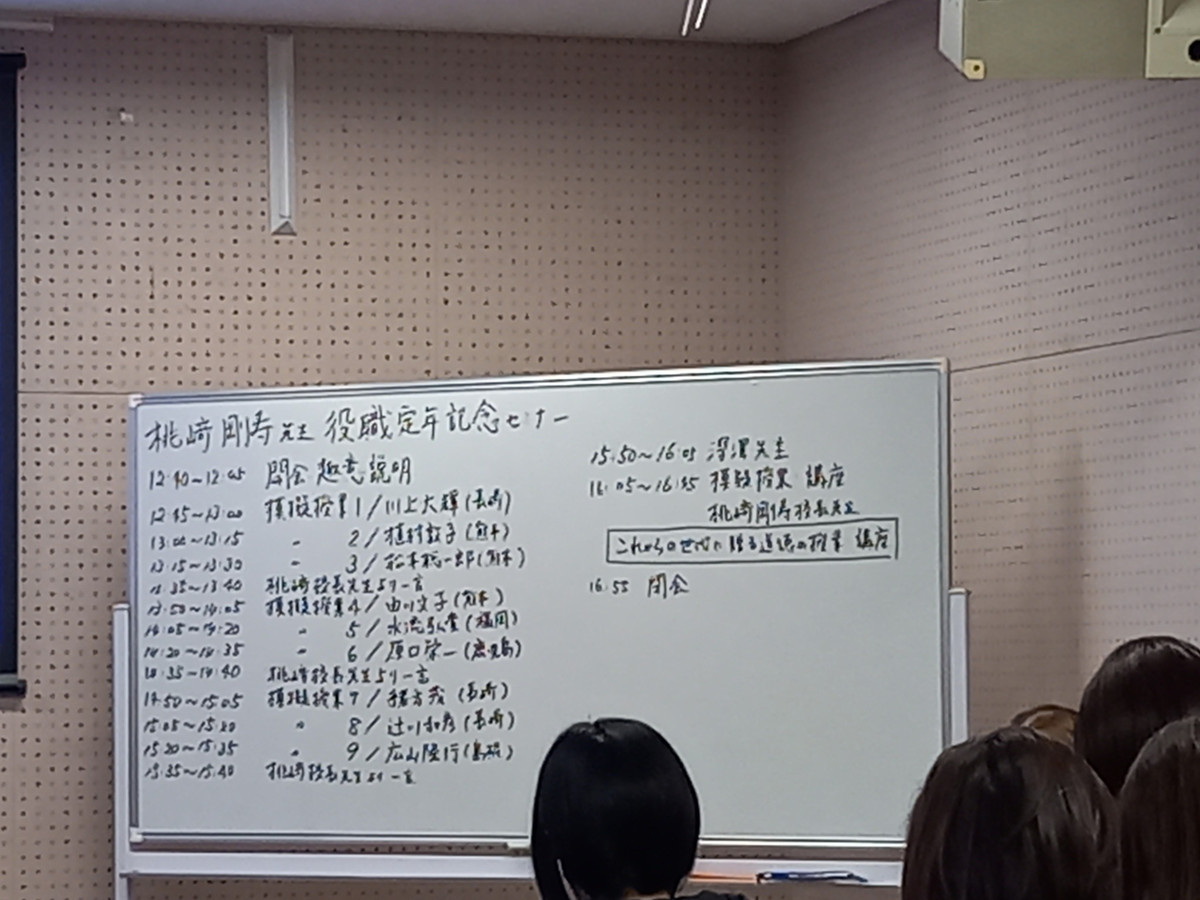 桃﨑剛寿先生 役職定年記念セミナー
12:40~12:45 開会 趣意説明
12:45~13:00 模擬授業1/川上大輝(長崎)
13:00~13:15 〃 2/植村敦子(熊本)
13:15~13:30 〃 3/松本 一郎(熊本)
13:35~13:40 桃﨑校長先生より一言
13:50~14:05 模擬授業4/由川文子(熊本)
14:05~14:20 〃 5/水流弘貴(福岡)
14:20~14:35 〃 6/原口栄一(鹿児島)
14:35~14:40 桃﨑校長先生より一言
14:50~15:05 模擬授業7/緒方茂(長崎)
15:05~15:20 〃 8/辻川和彦(長崎)
15:20~15:35 〃 9/広山隆行(島根)
15:35~15:40 桃﨑校長先生より一言
15:50~16:05 深澤先生
16:05~16:45 模擬授業 講座
桃﨑剛寿校長先生
これからの世代に贈る道徳の授業 講座
16:55 閉会